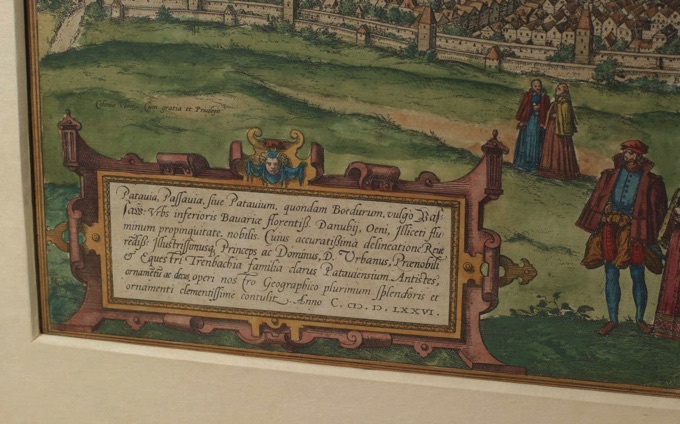 Cum gratia et Priuileg
Patauia, Passauia, siue Patauium, quondam Boiodurum, vulgo Pas
saw. Vrbs inferioris Bauariæ florentiss. Danubij, Oeni, Illiceti flu
minum propinquitate, nobilis. Cuius accuratissima delineatione Reue
rediss. Illustrissimusq, Princeps ac Dominus, D. Vrbanus, Prænobili
& Equestri Trenbachia familia clarus Patauiensium Antistes,
operi nostro Geographico plurimum splendoris et
ornamenti clementissime contulit. Anno C. CIↃ. D. LXXVI.